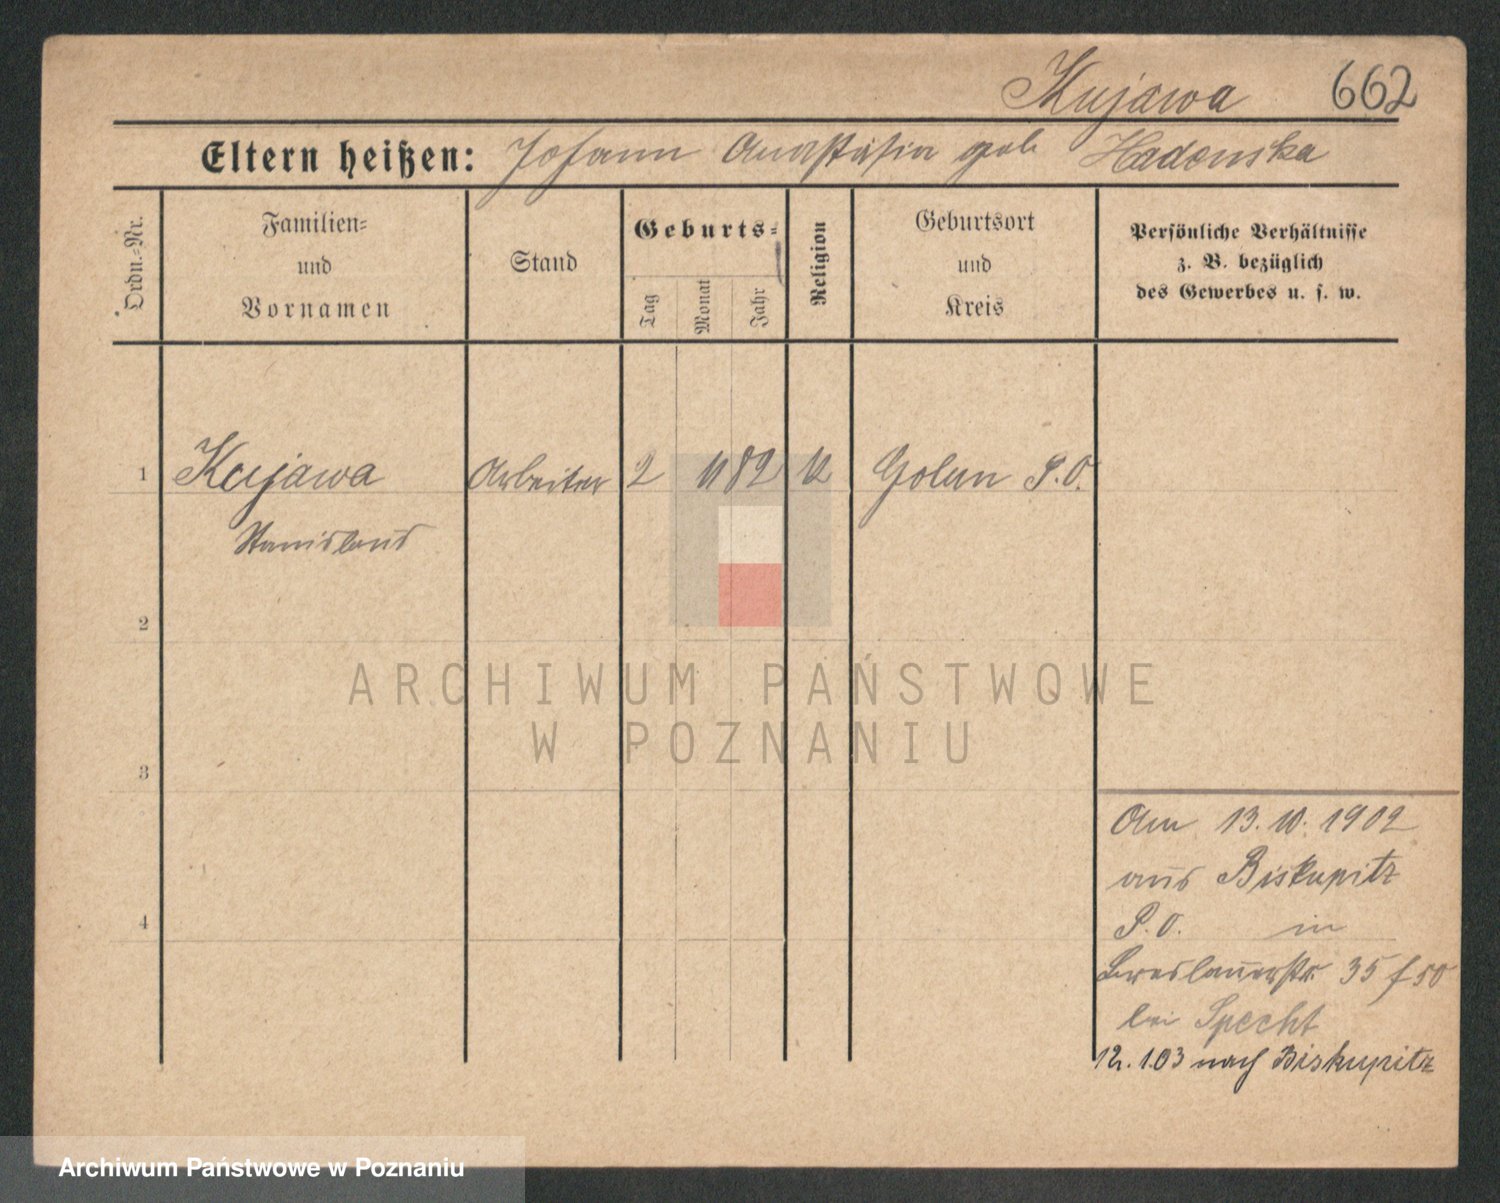 Kujawa 662
Eltern heißen: Johann Anastasia geb. Hadenska
Ordn.-Nr.
Familien=
und
Vornamen
Stand
Geburts=
Tag
Monat
Jahr
Religion
Geburtsort
und
Kreis
Persönliche Verhältnisse
z. B. bezüglich
des Gewerbes u. s. w.
1 Kujawa Arbeiter 2 11 82 K Golun P.O.
Stanislaus
2
3
4
ARCHIWUM PAŃSTWOWE
W POZNANIU
Am 13. 10. 1902
aus Biskupitz
P.O. in
Breslauerstr. 35 f 50
bei Specht
12. 1.03 nach Biskupitz
Archiwum Państwowe w Poznaniu